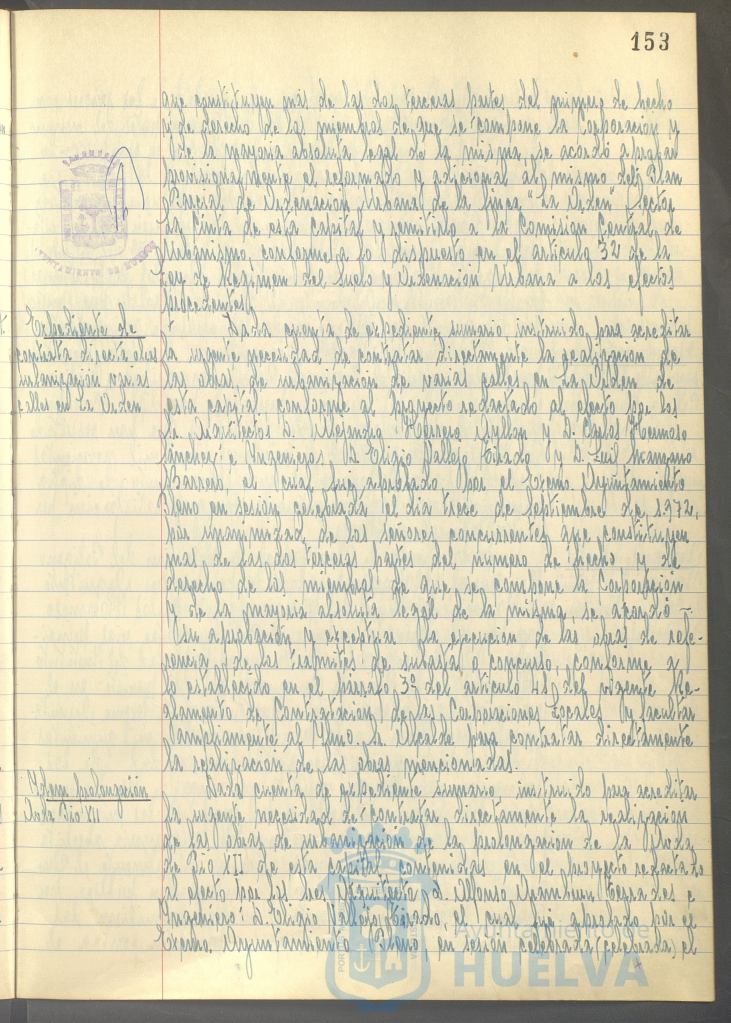 153
que constituyen más de las dos terceras partes del número de hecho
y de derecho de los miembros de que se compone la Corporación y
de la mayoria absoluta legal de la misma, se acordó aprobar
provisionalmente el reformado y adicional al mismo del Plan
Parcial de Ordenación Urbana de la finca "La Orden" Sector
La Cinta de esta capital y remitirlo a la Comision Central de
Urbanismo, conforme a lo dispuesto en el artículo 32 de la
Ley de Regimen del Suelo y Ordenación Urbana a los efectos
procedentes.
Expediente de
contrata directa obras
urbanización varias
calles en La Orden
Dada cuenta de expediente sumario instruido para acreditar
la urgente necesidad de contratar directamente la realizacion de
las obras de urbanizacion de varias calles en La Orden de
esta capital, conforme al proyecto redactado al efecto por los
Sr. Arquitectos D. Alejandro Herrero Ayllon y D. Carlos Hermoso
Sanchez e Ingenieros D. Eligio Vallejo Tirado y D. Luis Manzano
Barrero, el cual fué aprobado por el Excmo. Ayuntamiento
Pleno en sesión celebrada el dia trece de Septiembre de 1.972,
por unanimidad de los señores concurrentes que constituyen
mas de las dos terceras partes del numero de hecho y de
derecho de los miembros de que se compone la Corporación
y de la mayoria absoluta legal de la misma, se acordó -
su aprobación y exceptuar la ejecucion de las obras de refe-
rencia de los tramites de subasta o concurso, conforme a
lo establecido en el párrafo 3º del articulo 41 del vigente Re-
glamento de Contratacion de las Corporaciones Locales y facultar
ampliamente al Ylmo. Sr. Alcalde para contratar directamente
la realizacion de las obras mencionadas.
Ydem prolongación
Avda Pio XII
Dada cuenta de expediente sumario instruido para acreditar
la urgente necesidad de contratar directamente la realizacion
de las obras de urbanizacion de la prolongacion de la Avda.
de Pio XII de esta capital, contenidas en el proyecto redactado
al efecto por los Sres. Arquitecto D. Alfonso Aramburu Terrades e
Ingeniero D. Eligio Vallejo Tirado, el cual fué aprobado por el
Excmo. Ayuntamiento Pleno, en sesión celebrada (celebrada) el
Ayuntamiento de
HUELVA